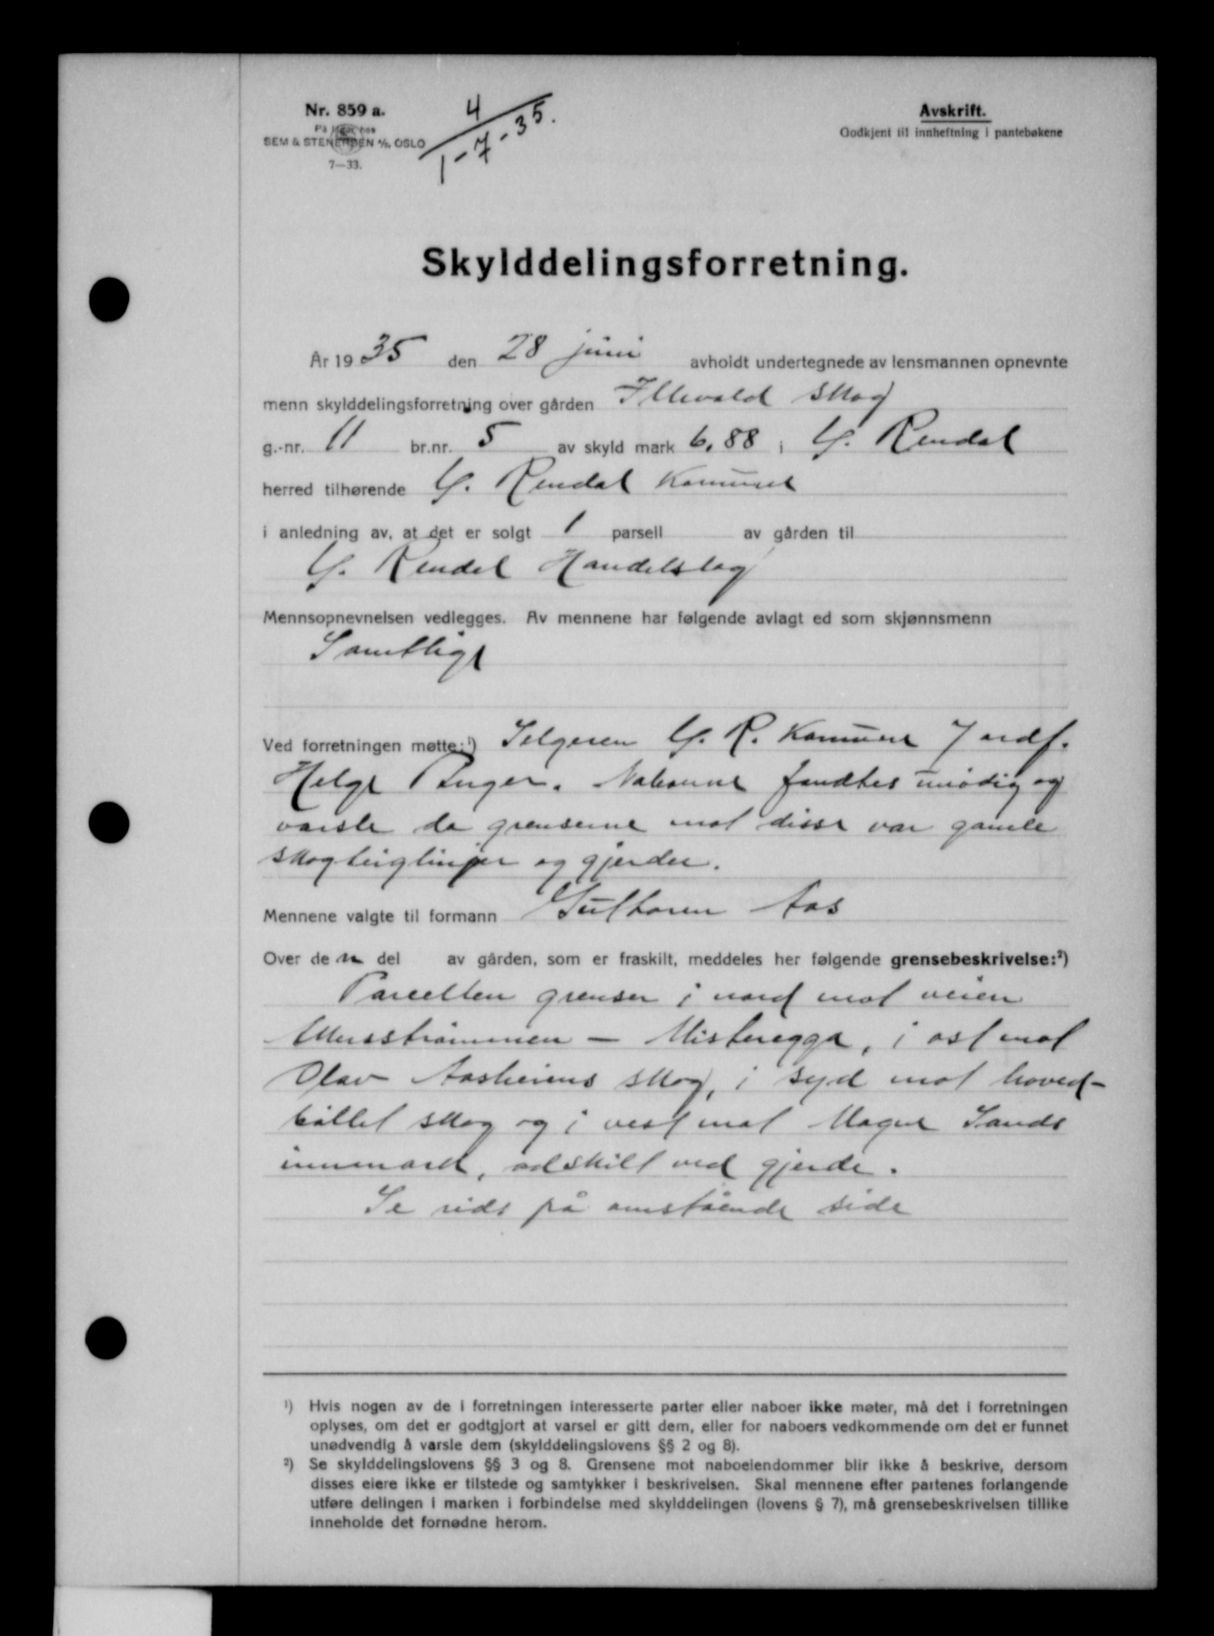 Nr. 859 a.
På lager hos
SEM & STENERSEN A/S, OSLO
7—33.
4/1-7-35.
Avskrift.
Godkjent til innheftning i pantebøkene
Skylddelingsforretning.
År 1935 den 28 juni avholdt undertegnede av lensmannen opnevnte
menn skylddelingsforretning over gården Illevold skog
g.-nr. 11 br.nr. 5 av skyld mark 6,88 i Y. Rendal
herred tilhørende Y. Rendal Komune
i anledning av, at det er solgt 1 parsell av gården til
Y. Rendal Handelslag
Mennsopnevnelsen vedlegges. Av mennene har følgende avlagt ed som skjønnsmenn
Samtlige
Ved forretningen møtte:¹) Selgeren Y. R. Komune v/ ordf.
Helge Unger. Naboerne fandtes unødig og
varsle da grenserne mot disse var gamle
skogteiglinjer og gjerder.
Mennene valgte til formann Guthorm Aas
Over den del av gården, som er fraskilt, meddeles her følgende grensebeskrivelse:²)
Parcellen grenser i nord mot veien
— Misteregga, i øst mot
Olav Aasheims skog, i syd mot hoved-
bøllet skog og i vest mot Magne Sands
innmark, adskilt ved gjerde.
Se rids på omstående side
¹) Hvis nogen av de i forretningen interesserte parter eller naboer ikke møter, må det i forretningen
oplyses, om det er godtgjort at varsel er gitt dem, eller for naboers vedkommende om det er funnet
unødvendig å varsle dem (skylddelingslovens §§ 2 og 8).
²) Se skylddelingslovens §§ 3 og 8. Grensene mot naboeiendommer blir ikke å beskrive, dersom
disses eiere ikke er tilstede og samtykker i beskrivelsen. Skal mennene efter partenes forlangende
utføre delingen i marken i forbindelse med skylddelingen (lovens § 7), må grensebeskrivelsen tillike
inneholde det fornødne herom.